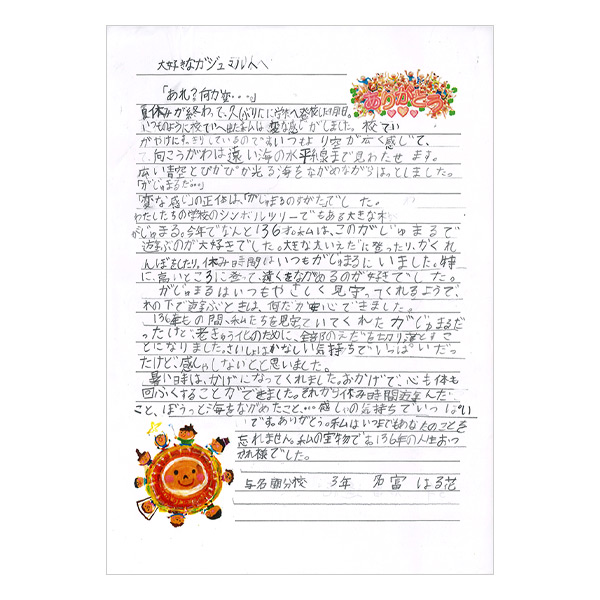 大好きながジュマルさんへ
ありがとう
「あれ？何か変・・・」
夏休みが終わって、久しぶりに学校へ登校した月曜日。
いつものように校ていへ出た私は「変な感じ」がしました。校てい
がやけにすっきりしているのです。いつもより空が広く感じて、
て、向こうがわは遠い海の水平線まで見わたせます。
広い青空とぴかぴか光る海をながめながらはっとしました。
「がじゅまるだ・・・」
「変な感じ」の正体は、「がじゅまるのすがた」でした。
わたしたちの学校のシンボルツリーでもある大きな木
がじゅまる。今年でなんと136才。私は、このがじゅまるで
遊ぶのが大好きでした。大きな太いえだに登ったり、かくれ
んぼをしたり。休み時間はいつもがじゅまるにいました。特
に、高いところに登って、遠くをながめるのが好きでした。
がじゅまるはいつもやさしく見守ってくれるようで、
木の下で遊ぶときは、何だか安心できました。
136年もの間、私たちを見守ていてくれたがじゅまるだ
ったけど、老きゅう化のために、全部のえだを切り落とすこ
とになりました。さいしょはかなしい気持ちでいっぱいだっ
たけど、感しゃしないとと思いました。
暑い日時は、かげになってくれました。おかげで、心も体も
回ふくすることができました。それから休み時間遊んだ
こと、ぼうっと海をながめたこと、…感しゃの気持ちでいっぱい
です。ありがとう。私はいつまでもあなたのことを
忘れません。私の宝物です。136年の人生おつ
かれ様でした。
分校 3年 はる花